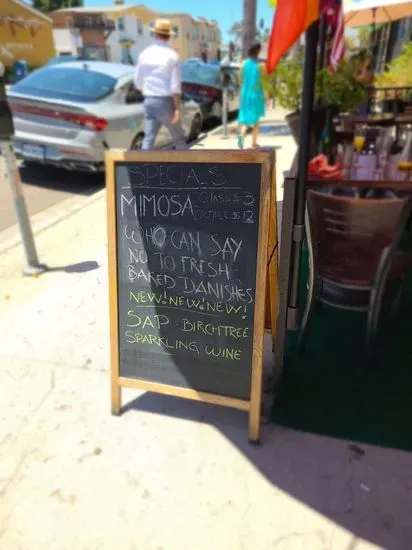 SPECIALS
MIMOSA GLASS $3
BOTTLE $12
WHO CAN SAY
NO TO FRESH
BAKED DANISHES
NEW! NEW! NEW!
SAP BIRCHTREE
SPARKLING WINE